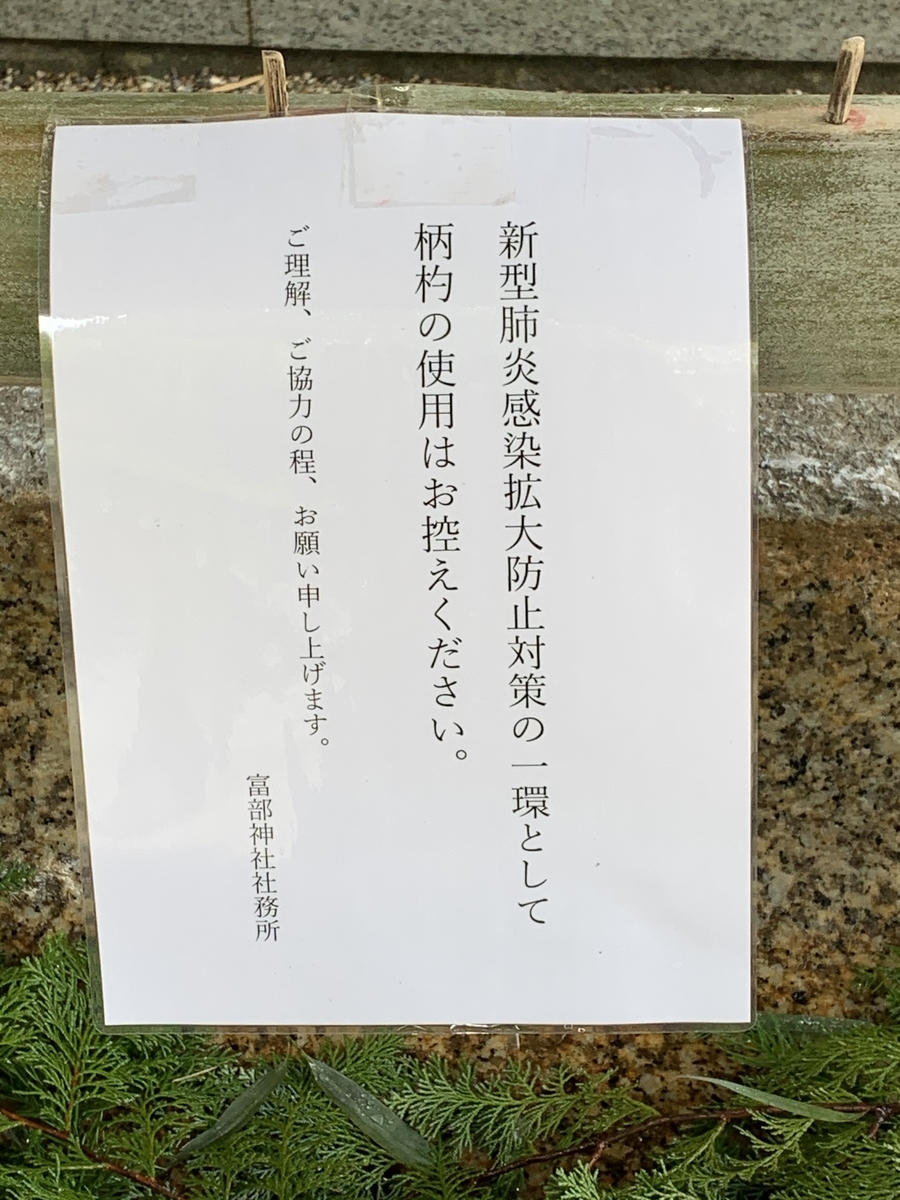 新型肺炎感染拡大防止対策の一環として
柄杓の使用はお控えください。
ご理解、ご協力の程、お願い申し上げます。
富部神社社務所